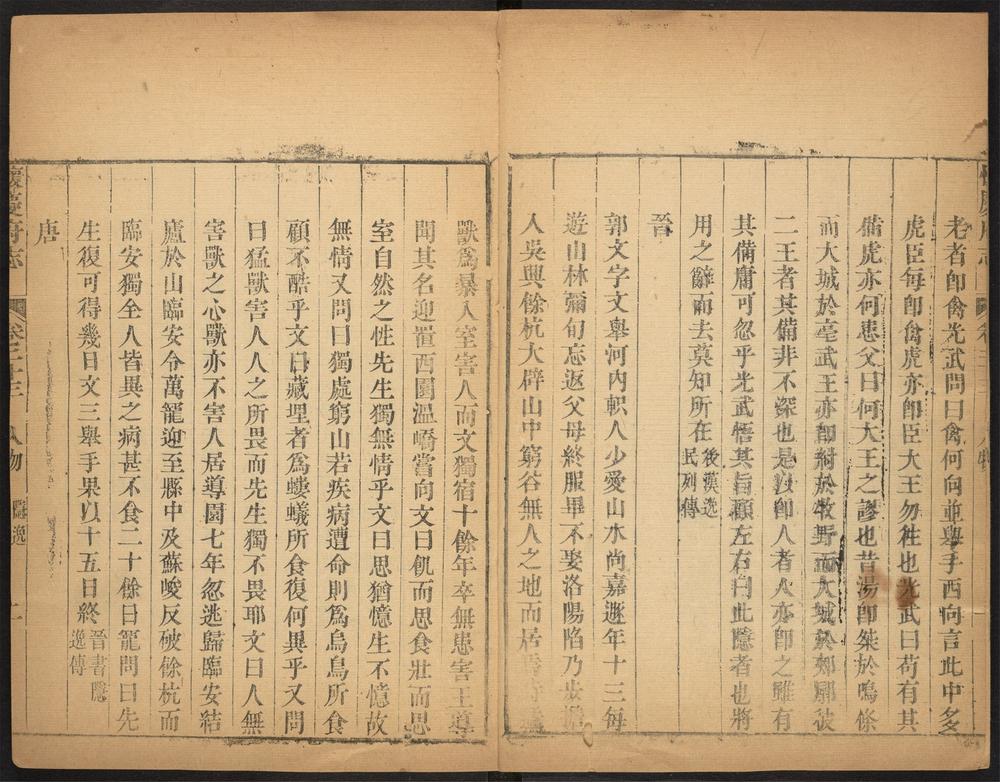 老者卽禽光武問曰禽何向並舉手西向言此中多
虎臣每卽禽虎亦卽臣大王勿往也光武曰苟有其
備虎亦何患父曰何大王之謬也昔湯卽桀於鳴條
而大城於亳武王亦卽紂於牧野而大城於郟鄏彼
二王者其備非不深也是以卽人者人亦卽之雖有
其備庸可忽乎光武悟其旨顧左右曰此隱者也將
用之辭而去莫知所在後漢逸民列傳
晉
郭文字文舉河內軹人少愛山水尚嘉遯年十三每
遊山林彌旬忘返父母終服畢不娶洛陽陷乃步擔
入吳興餘杭大辟山中窮谷無人之地而居
獸爲暴入室害人而文獨宿十餘年卒無患害王導
聞其名迎置西園溫嶠嘗向文曰飢而思食壯而思
室自然之性先生獨無情乎文曰思猶憶生不憶故
無情又問曰獨處窮山若疾病遭命則爲烏鳥所食
顧不酷乎文曰藏埋者爲螻蟻所食復何異乎又問
曰猛獸害人人之所畏而先生獨不畏耶文曰人無
害獸之心獸亦不害人居導園七年忽逃歸臨安結
廬於山臨安令萬寵迎至縣中及蘇峻反破餘杭而
臨安獨全人皆異之病甚不食二十餘日寵問曰先
生復可得幾日文三舉手果以十五日終晉書隱逸傳
唐
懷慶府志 卷二十三 人物 隱逸 二